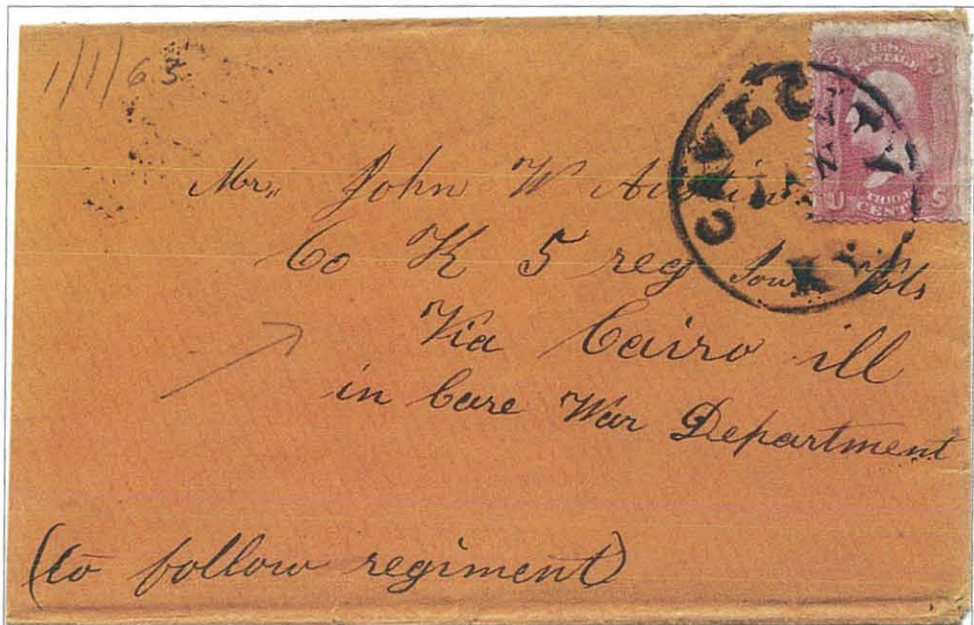 1/1/63
U.S. POSTAGE
THREE CENTS
U S
CAVE CITY
KY.
Mr. John W Austin
Co K 5 reg Iowa Vols
Via Cairo ill
in Care War Department
(to follow regiment)